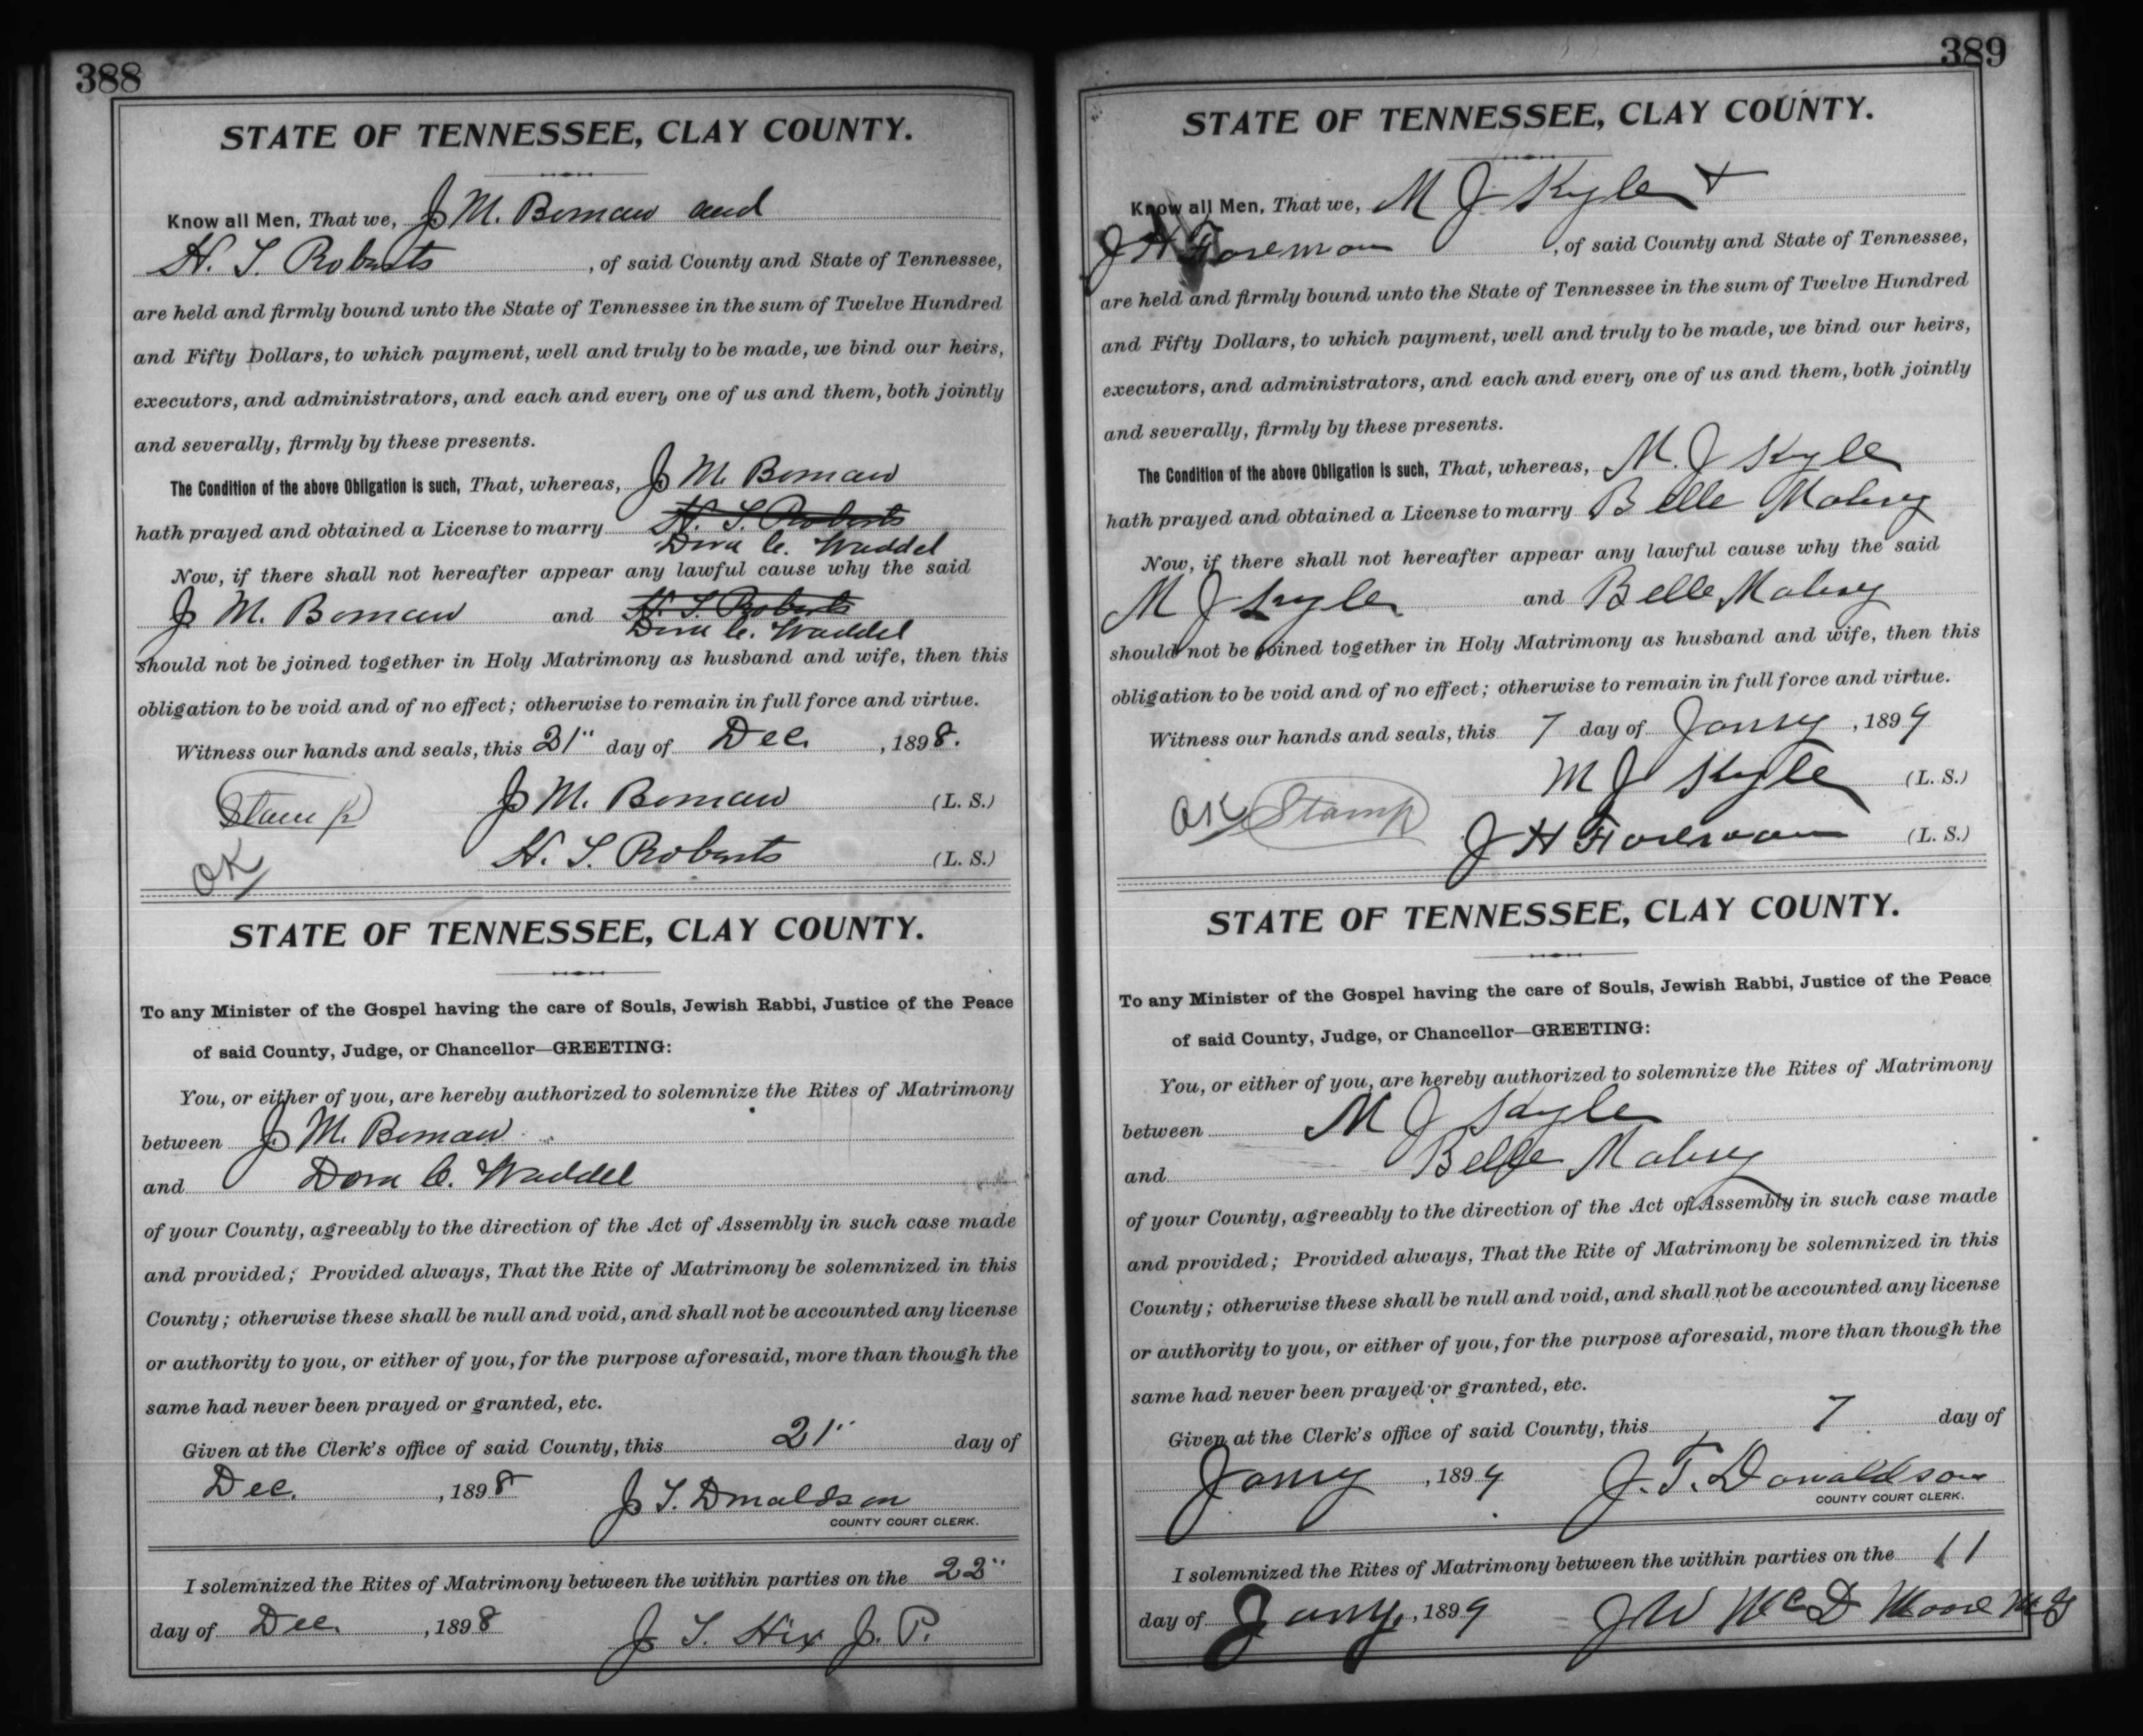 388
STATE OF TENNESSEE, CLAY COUNTY.
Know all Men, That we, J M. Boman and
H. S. Roberts , of said County and State of Tennessee,
are held and firmly bound unto the State of Tennessee in the sum of Twelve Hundred
and Fifty Dollars, to which payment, well and truly to be made, we bind our heirs,
executors, and administrators, and each and every one of us and them, both jointly
and severally, firmly by these presents.
The Condition of the above Obligation is such, That, whereas, J M Boman
hath prayed and obtained a License to marry H. S. Roberts
Dora C. Waddel
Now, if there shall not hereafter appear any lawful cause why the said
J M. Boman and H. S. Roberts
Dora C. Waddel
should not be joined together in Holy Matrimony as husband and wife, then this
obligation to be void and of no effect; otherwise to remain in full force and virtue.
Witness our hands and seals, this 21" day of Dec. , 1898.
Stamp J M. Boman (L. S.)
OK H. S. Roberts (L. S.)
STATE OF TENNESSEE, CLAY COUNTY.
To any Minister of the Gospel having the care of Souls, Jewish Rabbi, Justice of the Peace
of said County, Judge, or Chancellor—GREETING:
You, or either of you, are hereby authorized to solemnize the Rites of Matrimony
between J M. Boman
and Dora C. Waddel
of your County, agreeably to the direction of the Act of Assembly in such case made
and provided; Provided always, That the Rite of Matrimony be solemnized in this
County; otherwise these shall be null and void, and shall not be accounted any license
or authority to you, or either of you, for the purpose aforesaid, more than though the
same had never been prayed or granted, etc.
Given at the Clerk's office of said County, this 21" day of
Dec. , 1898 J T. Donaldson
COUNTY COURT CLERK.
I solemnized the Rites of Matrimony between the within parties on the 22"
day of Dec. , 1898 J S. Hix J. P.
389
STATE OF TENNESSEE, CLAY COUNTY.
Know all Men, That we, M J Kyle +
J H Foreman , of said County and State of Tennessee,
are held and firmly bound unto the State of Tennessee in the sum of Twelve Hundred
and Fifty Dollars, to which payment, well and truly to be made, we bind our heirs,
executors, and administrators, and each and every one of us and them, both jointly
and severally, firmly by these presents.
The Condition of the above Obligation is such, That, whereas, M. J Kyle
hath prayed and obtained a License to marry Belle Mabry
Now, if there shall not hereafter appear any lawful cause why the said
M J Kyle and Belle Mabry
should not be joined together in Holy Matrimony as husband and wife, then this
obligation to be void and of no effect; otherwise to remain in full force and virtue.
Witness our hands and seals, this 7 day of Jany , 1899
M J Kyle (L. S.)
OK Stamp J H Foreman (L. S.)
STATE OF TENNESSEE, CLAY COUNTY.
To any Minister of the Gospel having the care of Souls, Jewish Rabbi, Justice of the Peace
of said County, Judge, or Chancellor—GREETING:
You, or either of you, are hereby authorized to solemnize the Rites of Matrimony
between M J Kyle
and Belle Mabry
of your County, agreeably to the direction of the Act of Assembly in such case made
and provided; Provided always, That the Rite of Matrimony be solemnized in this
County; otherwise these shall be null and void, and shall not be accounted any license
or authority to you, or either of you, for the purpose aforesaid, more than though the
same had never been prayed or granted, etc.
Given at the Clerk's office of said County, this 7 day of
Jany , 1899 J. T. Donaldson
COUNTY COURT CLERK.
I solemnized the Rites of Matrimony between the within parties on the 11
day of Jany, , 1899 J W McD Moore M G